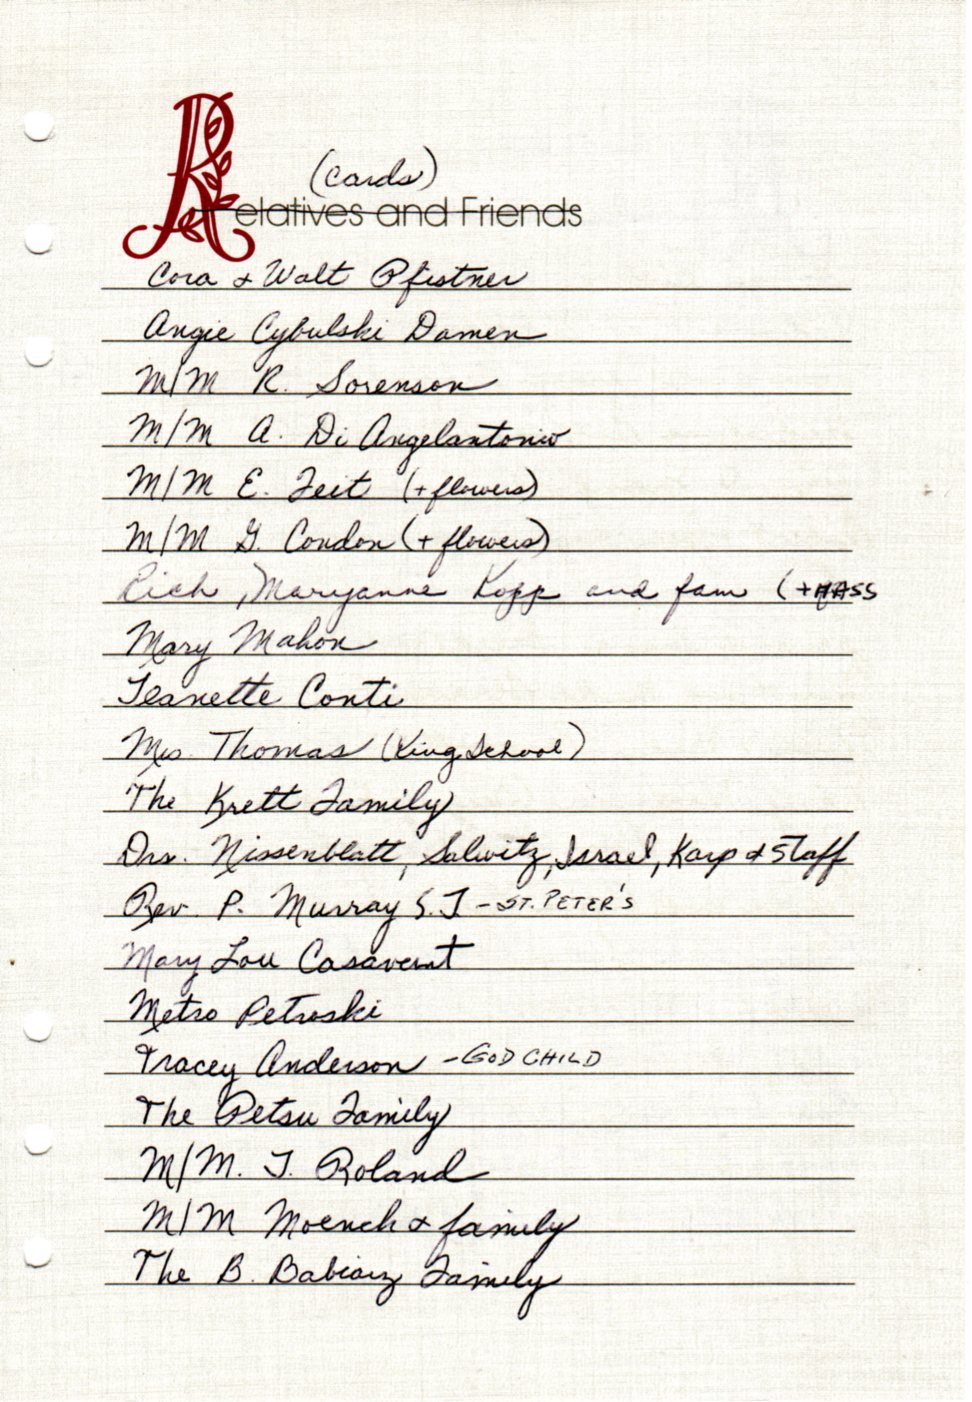 (cards)
Relatives and Friends
Cora & Walt Pfistner
Angie Cybulski Damen
M/M R. Sorenson
M/M A. Di Angelantonio
M/M E. Feit (+ flowers)
M/M G. Condon (+ flowers)
Rich, Maryanne Kopp and fam (+ MASS
Mary Mahon
Jeanette Conti
Mrs. Thomas (King School)
The Krett Family
Drs. Nissenblatt, Salwitz, Israel, Karp & Staff
Rev. P. Murray S.J - ST. PETER'S
Mary Lou Casavent
Metro Petroski
Tracey Anderson - GOD CHILD
The Petsu Family
M/M. J. Roland
M/M Moench & family
The B. Babiarz Family